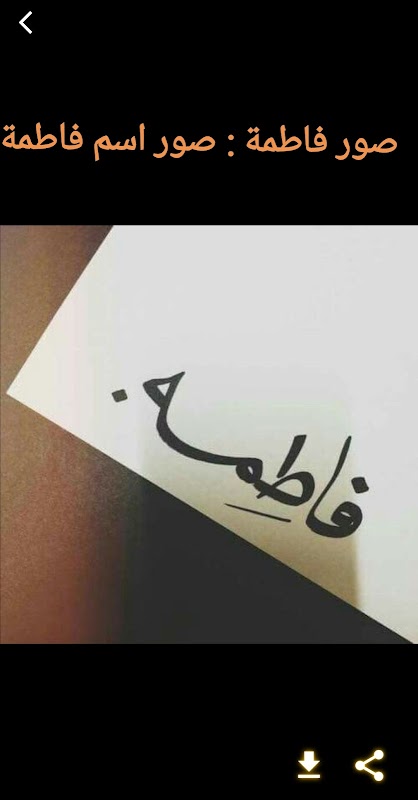 صور فاطمة : صور اسم فاطمة
فاطمه